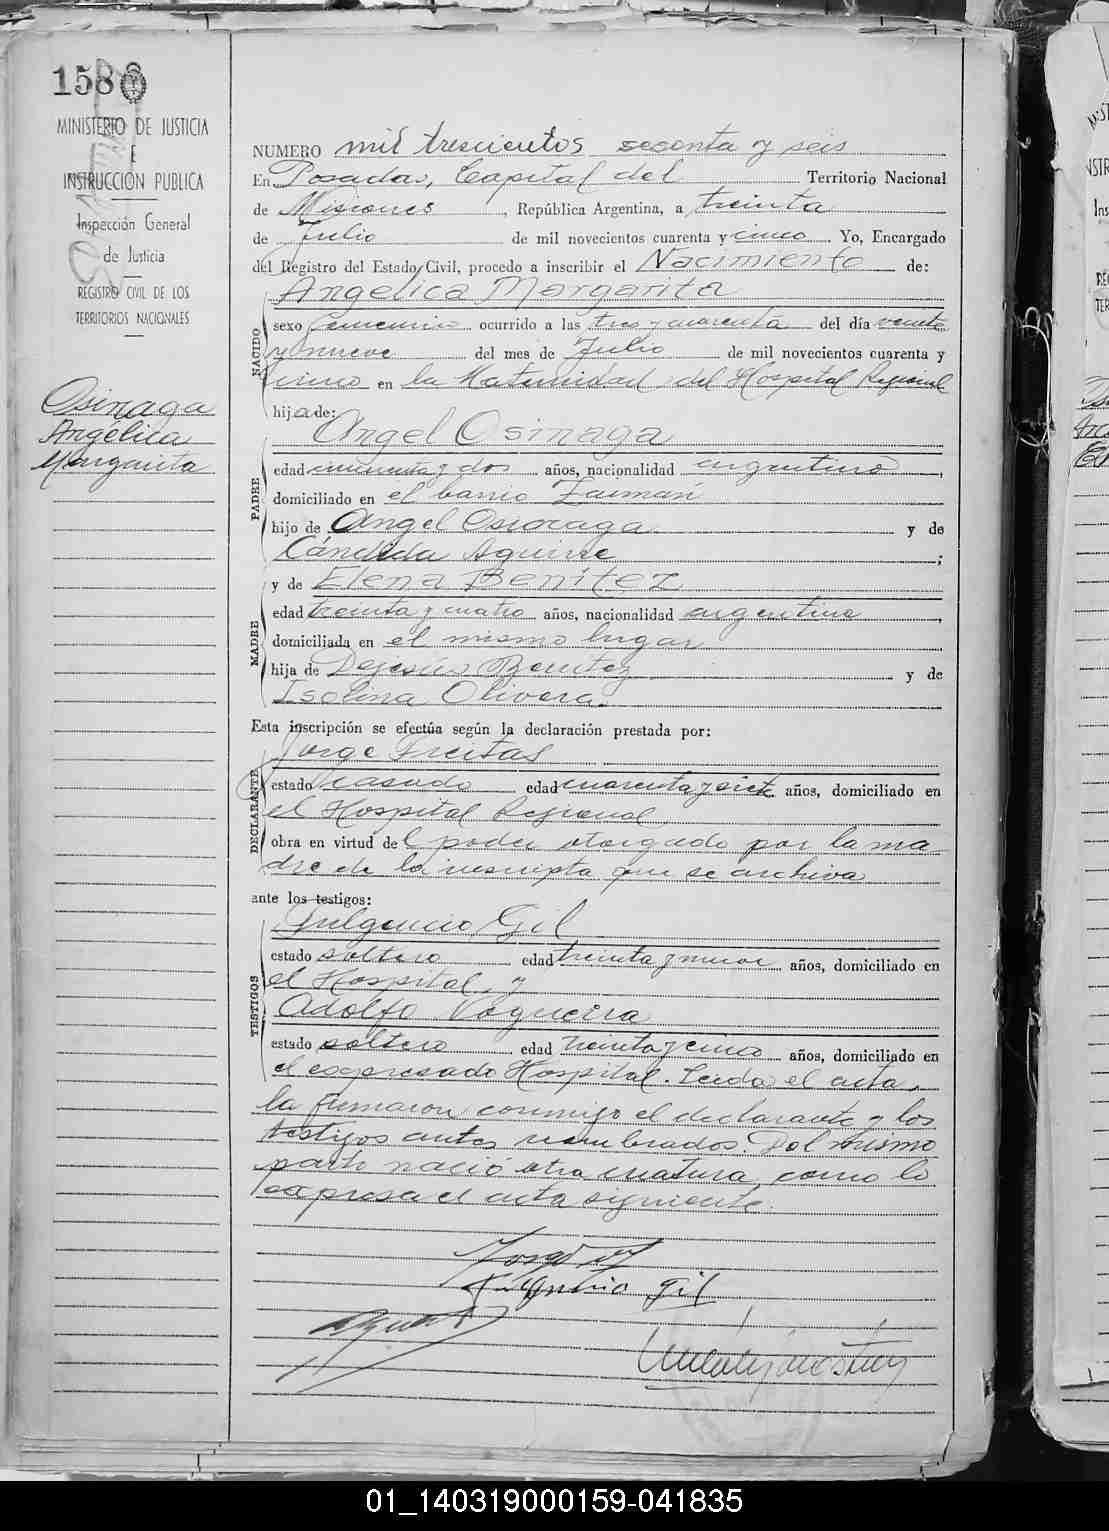 158
MINISTERIO DE JUSTICIA
E
INSTRUCCIÓN PUBLICA
Inspección General
de Justicia
REGISTRO CIVIL DE LOS
TERRITORIOS NACIONALES
Osinaga
Angélica
Margarita
NUMERO mil trescientos sesenta y seis
En Posadas, Capital del Territorio Nacional
de Misiones, República Argentina, a treinta
de Julio de mil novecientos cuarenta y cinco Yo, Encargado
del Registro del Estado Civil, procedo a inscribir el Nacimiento de:
NACIDO
Angélica Margarita
sexo femenino ocurrido a las tres y cuarenta del día veinte
y nueve del mes de Julio de mil novecientos cuarenta y
cinco en la Maternidad del Hospital Regional
hija de:
PADRE
Angel Osinaga
edad cincuenta y dos años, nacionalidad argentino,
domiciliado en el barrio Zaimán
hijo de Angel Osinaga y de
Cándida Aguirre;
MADRE
y de Elena Benítez
edad treinta y cuatro años, nacionalidad argentina,
domiciliada en el mismo lugar
hija de Dejesús Benítez y de
Isolina Olivera.
Esta inscripción se efectúa según la declaración prestada por:
DECLARANTE
Jorge Freitas
estado casado edad cuarenta y siete años, domiciliado en
el Hospital Regional
obra en virtud del poder otorgado por la ma
dre de la inscripta que se archiva
ante los testigos:
TESTIGOS
Fulgencio Gil
estado soltero edad treinta y nueve años, domiciliado en
el Hospital, y
Adolfo Nogueira
estado soltero edad treinta y cinco años, domiciliado en
el expresado Hospital. Leída el acta,
la firmaron conmigo el declarante y los
testigos antes nombrados. Del mismo
parto nació otra criatura, como lo
expresa el acta siguiente.
Gil
01_140319000159-041835